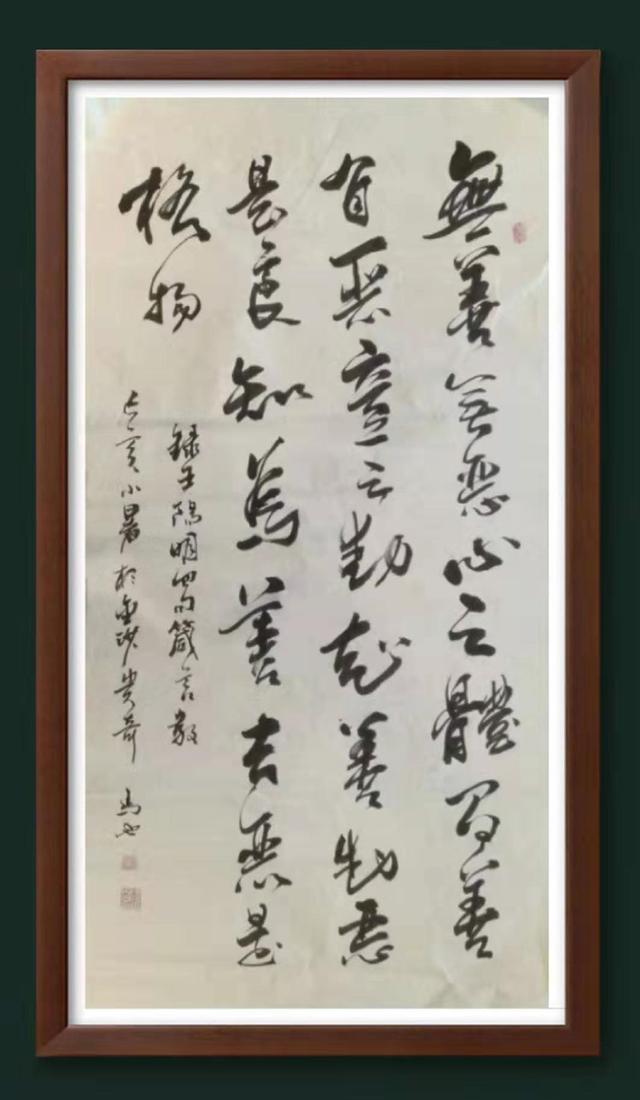 無善無惡心之體有善
有惡意之動知善知惡
是良知為善去惡是
格物
錄王陽明四句箴言教
己亥小暑於